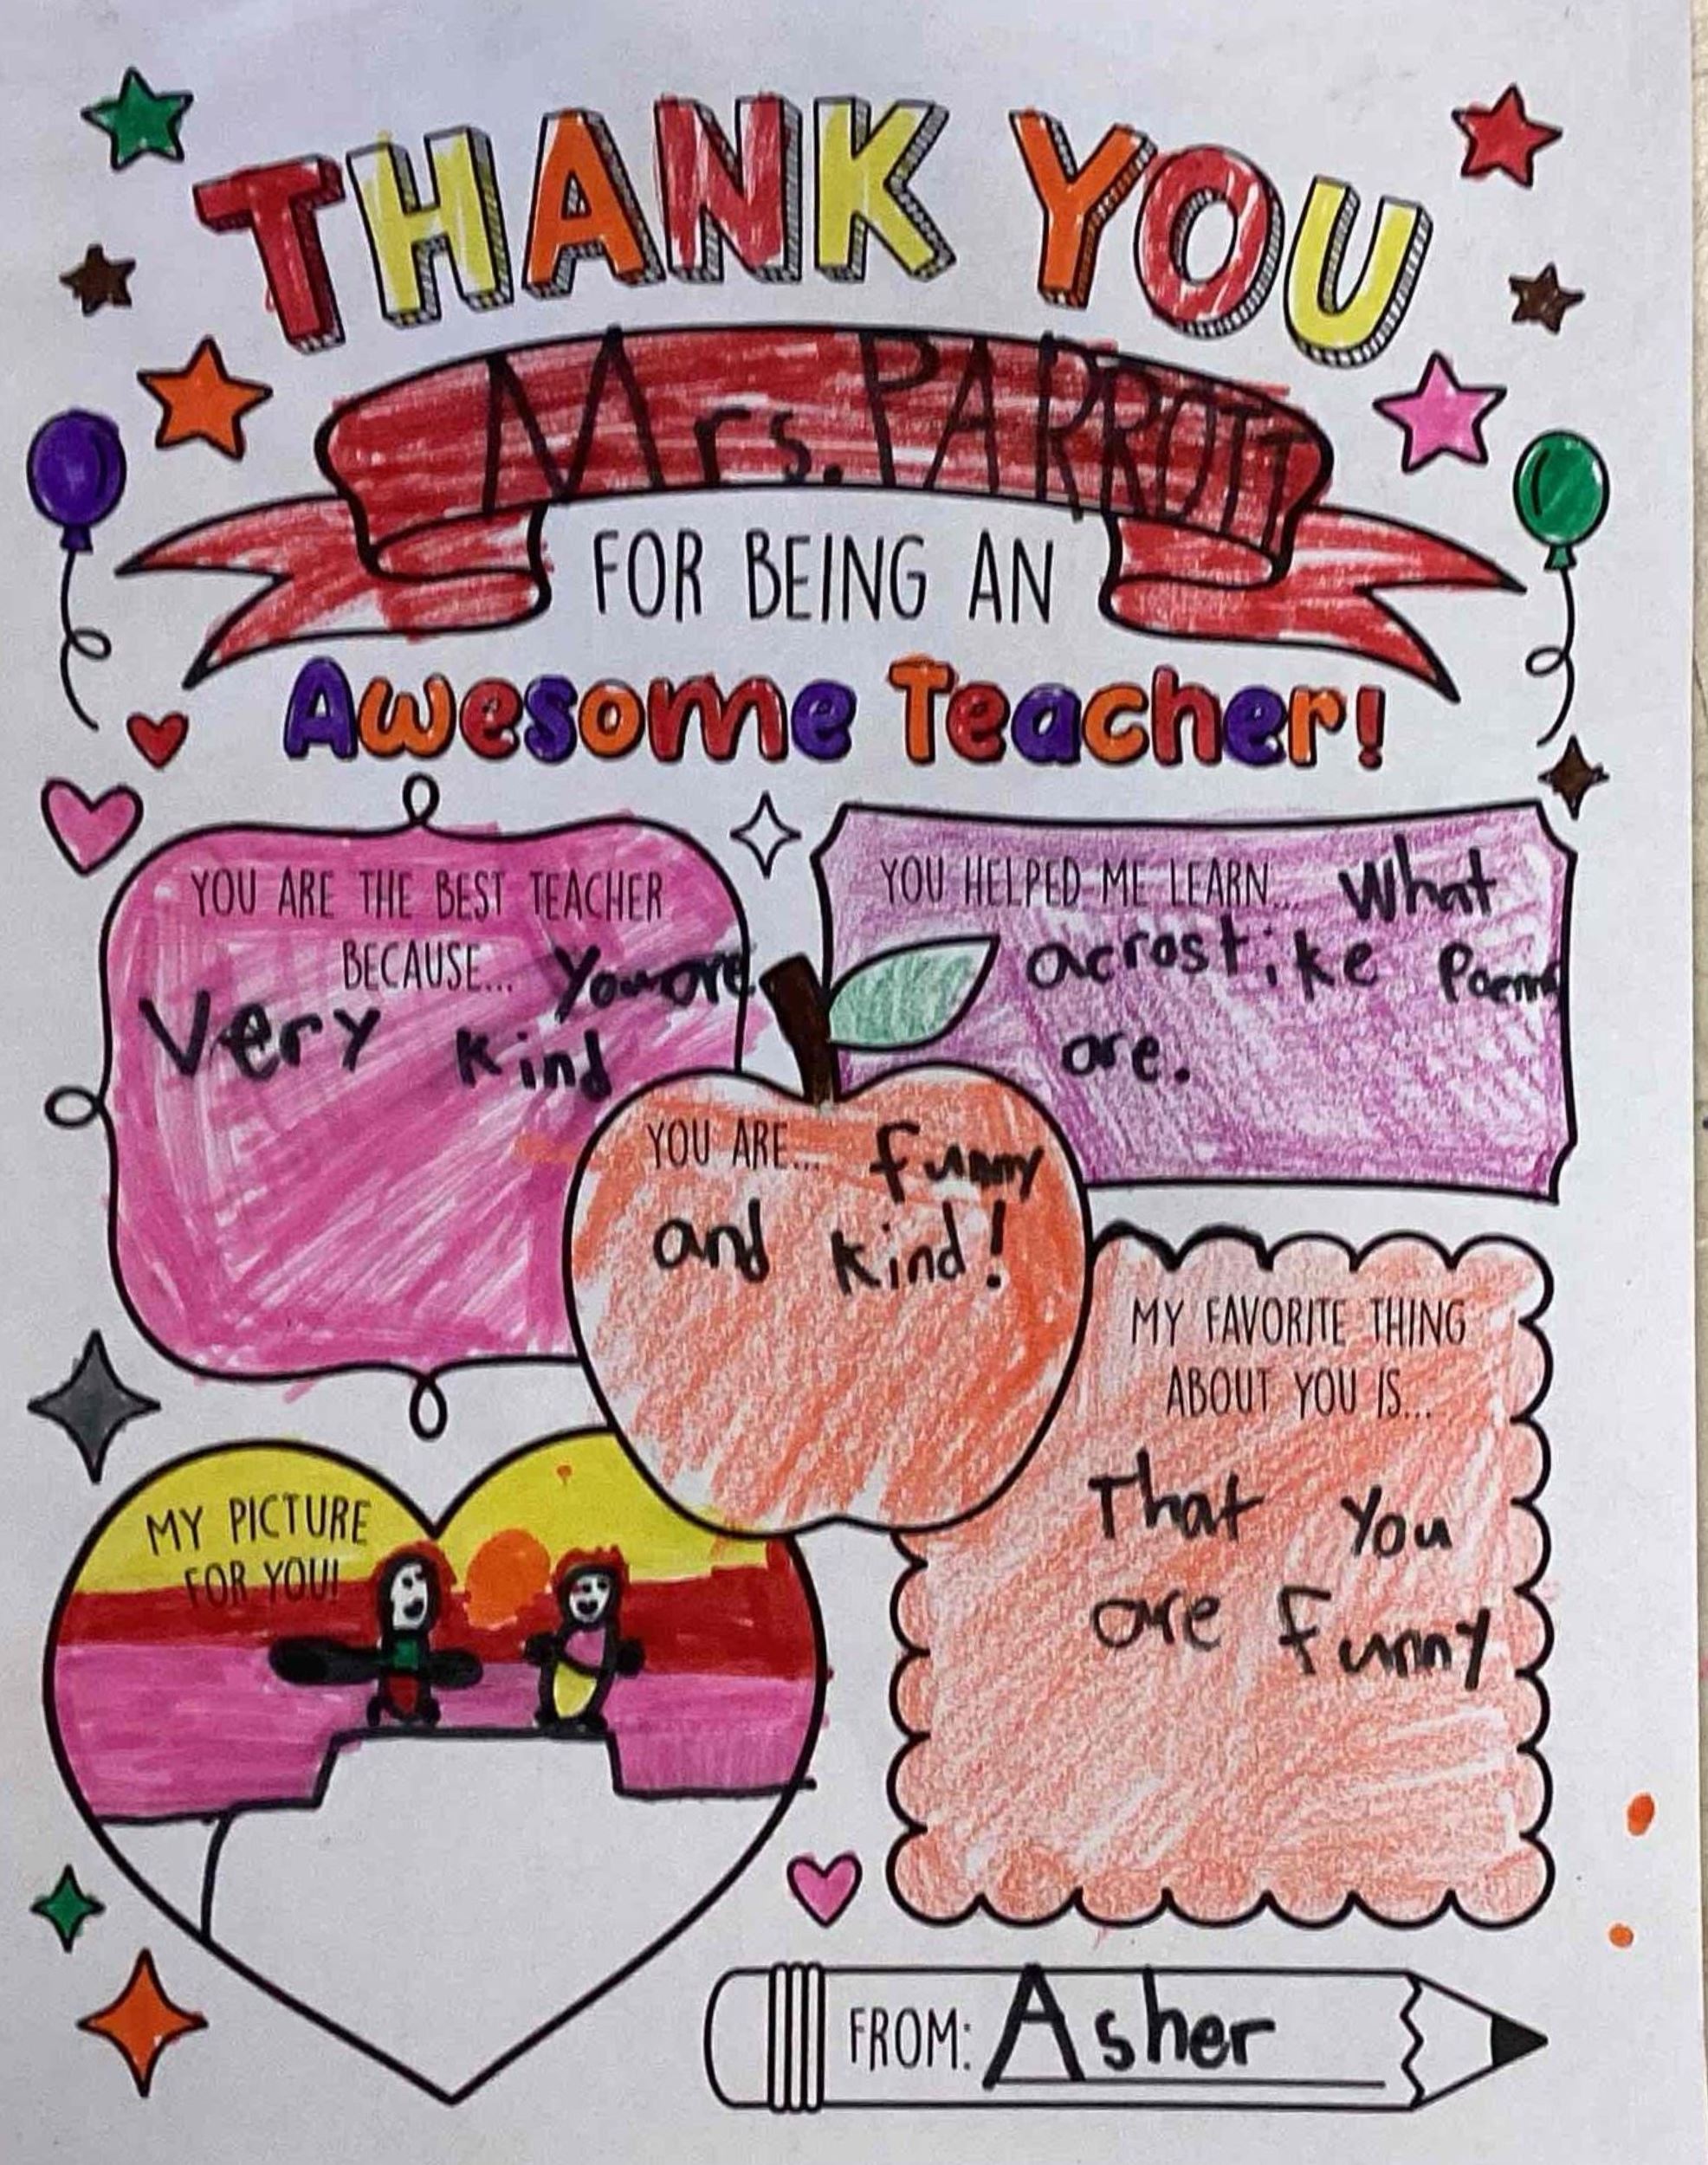 THANK YOU
Mrs. PARROTT
FOR BEING AN
Awesome Teacher!
YOU ARE THE BEST TEACHER
BECAUSE... You are
Very kind
YOU HELPED ME LEARN... What
acrostike Poems
are.
YOU ARE... funny
and kind!
MY FAVORITE THING
ABOUT YOU IS...
That You
are funny
MY PICTURE
FOR YOU!
FROM: Asher